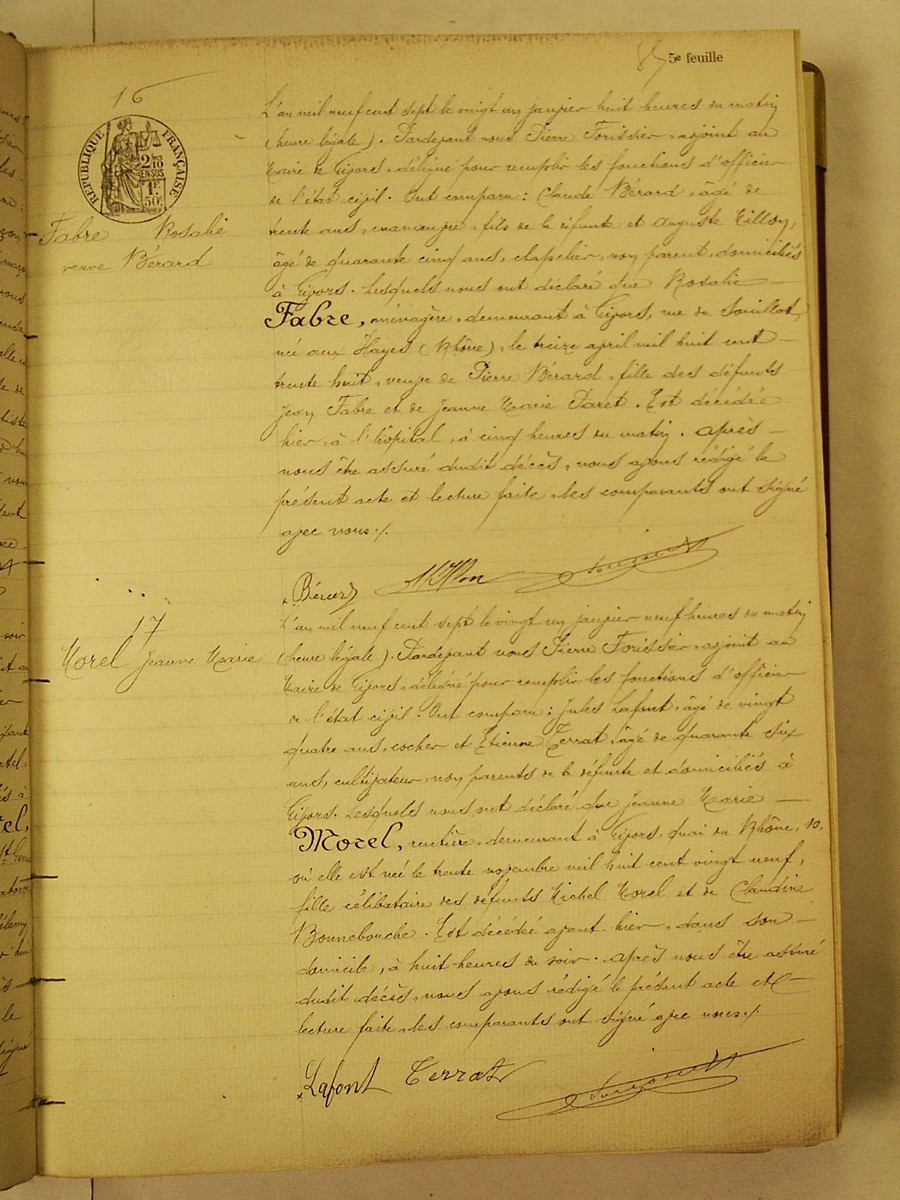 5e feuille
16
RÉPUBLIQUE FRANÇAISE
2/10 EN SUS
1F 50c
Fabre Rosalie
veuve Bérard
L'an mil neuf cent sept le vingt un janvier huit heures du matin
(heure légale). Pardevant nous Pierre Forissier, adjoint au
Maire de Givors, délégué pour remplir les fonctions d'officier
de l'état civil. Ont comparu : Claude Bérard, âgé de
trente ans, manœuvre, fils de la défunte et Auguste Tillon,
âgé de quarante cinq ans, chapelier, non parent, domiciliés
à Givors. Lesquels nous ont déclaré que Rosalie
Fabre, ménagère, demeurant à Givors, rue du Souillat,
née aux Hayes (Rhône), le treize avril mil huit cent
trente huit, veuve de Pierre Bérard, fille des défunts
Jean Fabre et de Jeanne Marie Paret. Est décédée
hier, à l'hôpital, à cinq heures du matin. Après
nous être assuré dudit décès, nous avons rédigé le
présent acte et lecture faite, les comparants ont signé
avec nous./.
Bérard
17
Morel Jeanne Marie
L'an mil neuf cent sept le vingt un janvier neuf heures du matin
(heure légale). Pardevant nous Pierre Forissier, adjoint au
Maire de Givors, délégué pour remplir les fonctions d'officier
de l'état civil. Ont comparu : Jules Lafont, âgé de vingt
quatre ans, cocher et Etienne Terrat, âgé de quarante six
ans, cultivateur, non parents de la défunte et domiciliés à
Givors. Lesquels nous ont déclaré que Jeanne Marie
Morel, rentière, demeurant à Givors, quai du Rhône, 10,
où elle est née le trente novembre mil huit cent vingt neuf,
fille célibataire des défunts Michel Morel et de Claudine
Bonnebouche. Est décédé avant hier, dans son
domicile, à huit heures du soir. Après nous être assuré
dudit décès, nous avons rédigé le présent acte et
lecture faite, les comparants ont signé avec nous./.
Lafont Terrat